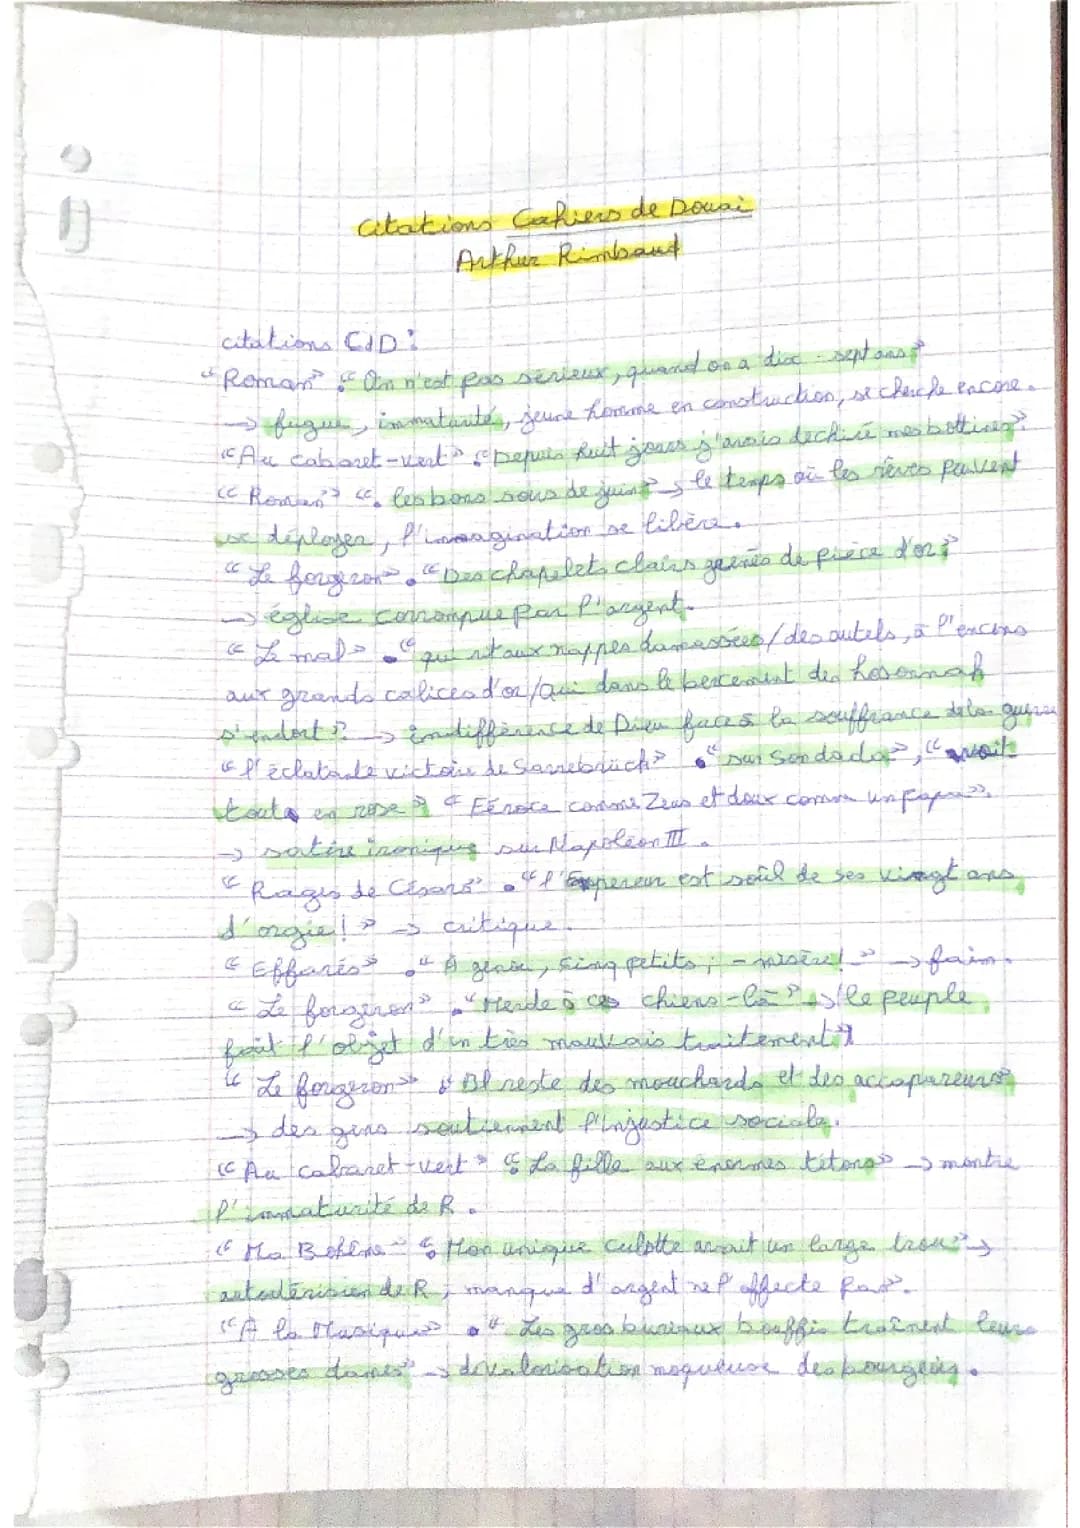 Citations Cahiers de Douai
Arthur Rimbaud
citations CdD :
"Roman" : "On n'est pas sérieux, quand on a dix-sept ans"
→ fugue, immaturité, jeune homme en construction, se cherche encore.
"Au cabaret-vert" : "Depuis huit jours j'avais dechiré mes bottines".
"Roman" : "les bons soirs de juin" → le temps où les rêves peuvent
se déployer, l'imagination se libère.
"Le forgeron" : "Des chapelets clairs grenés de pièce d'or"
→ église corrompue par l'argent.
"Le mal" : "qui rit aux nappes damassées/des autels, à l'encens
aux grands calices d'or/Qui dans le bercement des hosannah
s'endort". → Indifférence de Dieu face à la souffrance de la guerre
"l'éclatante victoire de Sarrebrück" : "sur son dada", "voit
tout en rose" "Féroce comme Zeus et doux comme un papa".
→ satire ironique sur Napoléon III.
"Rages de Césars" : "l'Empereur est soûl de ses vingt ans
d'orgie !" → critique.
"Effarés" : "À genoux, cinq petits, - misère ! -" → faim.
"Le forgeron" : "Merde à ces chiens-là" → le peuple
fait l'objet d'un très mauvais traitement
"Le forgeron" : "Il reste des mouchards et des accapareurs"
→ des gens soutiennent l'injustice sociale.
"Au cabaret-vert" : "La fille aux énormes tétons" → montre
l'immaturité de R.
"Ma Bohême" : "Mon unique culotte avait un large trou" →
autodérision de R, manque d'argent ne l'affecte pas".
"À la Musique" : "Les gros bureaux bouffis traînent leurs
grosses dames" → dévalorisation moqueuse des bourgeois.